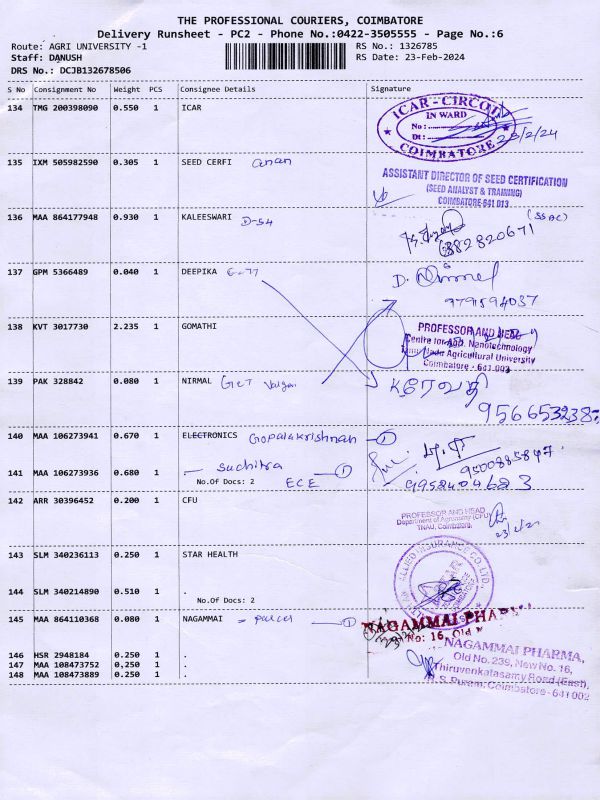 THE PROFESSIONAL COURIERS, COIMBATORE
Delivery Runsheet - PC2 - Phone No.:0422-3505555 - Page No.:6
Route: AGRI UNIVERSITY -1
RS No.: 1326785
Staff: DANUSH
RS Date: 23-Feb-2024
DRS No.: DCJB132678506
S No Consignment No Weight PCS Consignee Details Signature
134 TMG 200398090 0.550 1 ICAR
ICAR - CIRCOT
IN WARD
No:
Dt:
COIMBATORE
135 IXM 505982590 0.305 1 SEED CERFI
ASSISTANT DIRECTOR OF SEED CERTIFICATION
(SEED ANALYST & TRAINING)
COIMBATORE-641 013
136 MAA 864177948 0.930 1 KALEESWARI D-54
137 GPM 5366489 0.040 1 DEEPIKA
D.
9791594037
138 KVT 3017730 2.235 1 GOMATHI
PROFESSOR AND HEAD
Centre for Agrl. Nanotechnology
Tamil Nadu Agricultural University
Coimbatore - 641 003
139 PAK 328842 0.080 1 NIRMAL
ரேவதி
140 MAA 106273941 0.670 1 ELECTRONICS Gopalakrishnan - 1
141 MAA 106273936 0.680 1 . - Suchitra 1
No.Of Docs: 2 ECE
142 ARR 30396452 0.200 1 CFU
PROFESSOR AND HEAD
Department of Agronomy (CFU)
TNAU, Coimbatore
143 SLM 340236113 0.250 1 STAR HEALTH
ALLIED INSURANCE CO. LTD.
144 SLM 340214890 0.510 1 .
No.Of Docs: 2
145 MAA 864110368 0.080 1 NAGAMMAI - parcel 1
NAGAMMAI PHAR
No: 16, Old
146 HSR 2948184 0.250 1 .
147 MAA 108473752 0.250 1 .
148 MAA 108473889 0.250 1 .
NAGAMMAI PHARMA,
Old No. 239, New No. 16,
Thiruvenkatasamy Road (East),
R. S. Puram, Coimbatore - 641 002